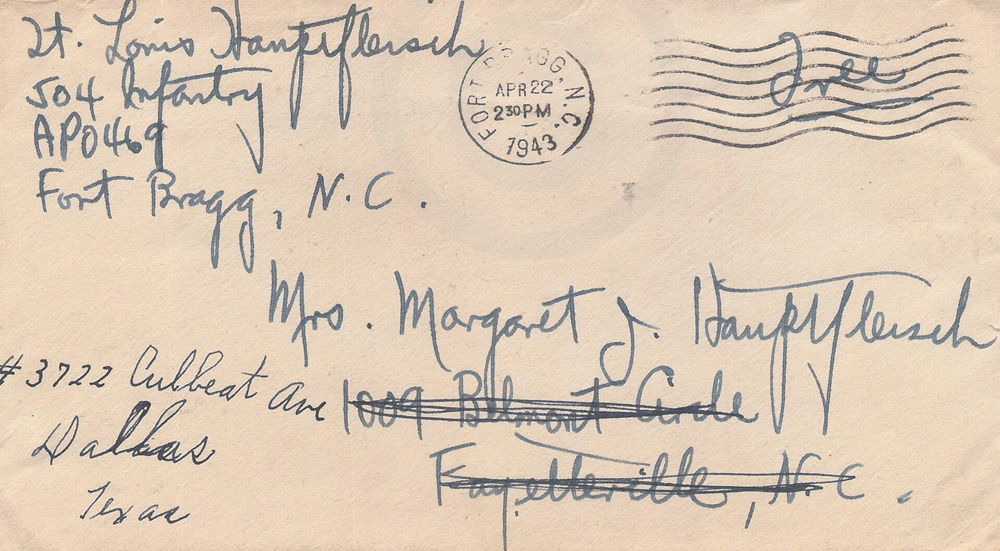 Lt. Louis Hauptfleisch
504 Infantry
APO 469
Fort Bragg, N.C.
FORT BRAGG, N.C.
APR 22
2 30 PM
1943
Free
Mrs. Margaret J. Hauptfleisch
1009 Belmont Circle
Fayetteville, N.C.
#3722 Culbeat Ave
Dallas
Texas